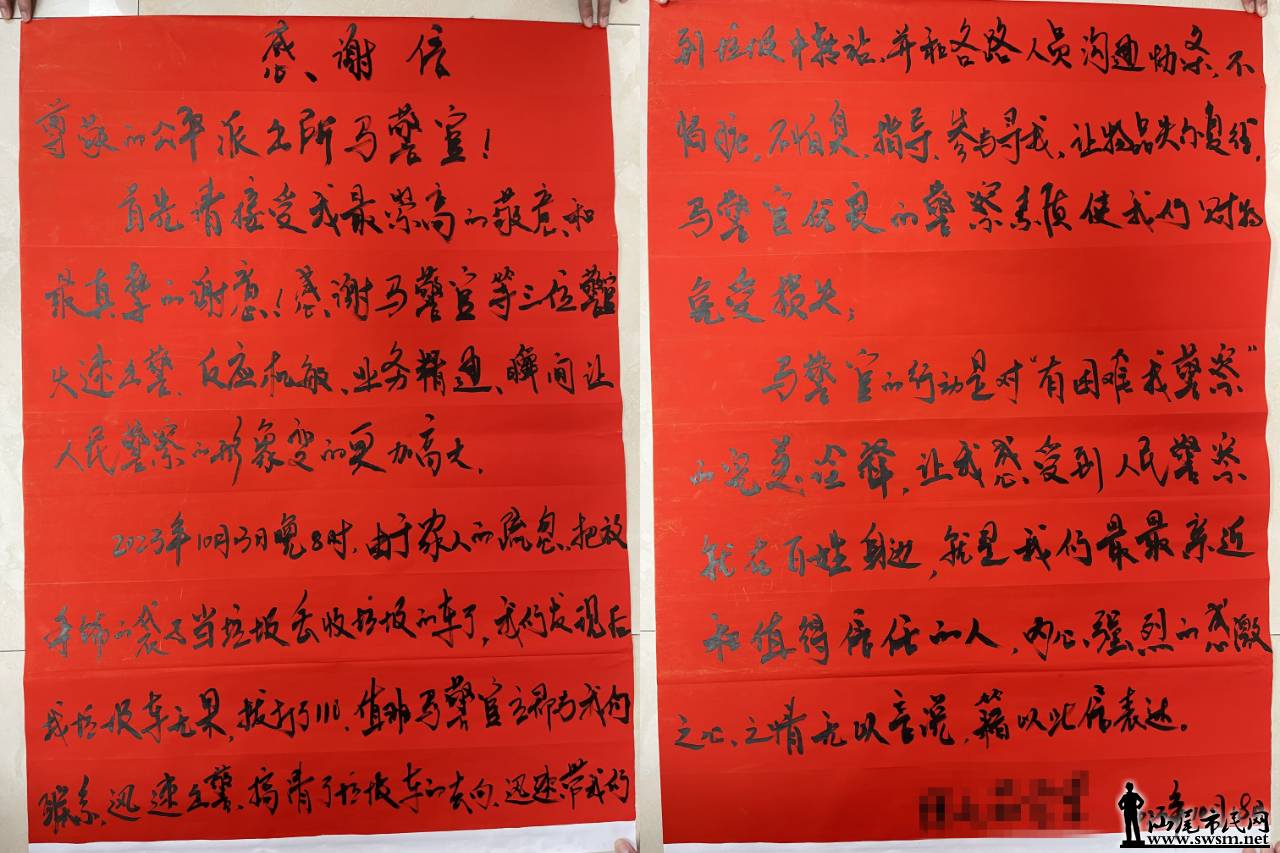 感谢信
尊敬的公平派出所马警官！
首先请接受我最崇高的敬意和
最真挚的谢意！感谢马警官等三位警官
火速出警、反应机敏、业务精通、瞬间让
人民警察的形象变的更加高大。
2023年10月3日晚8时，由于家人的疏忽，把放
首饰的袋子当垃圾丢收垃圾的车了，我们发现后
找垃圾车无果，拨打了110，值班马警官立即与我们
联系，迅速出警，搞清了垃圾车的去向，迅速带我们
到垃圾中转站，并和各路人员沟通协条，不
怕脏，不怕臭，指导、参与寻找，让物品失而复得，
马警官优良的警察素质使我们财物
免受损失；
马警官的行动是对“有困难找警察”
的完美诠释，让我感受到人民警察
就在百姓身边，就是我们最最亲近
和值得信任的人，内心强烈的感激
之心、之情无以言说，籍以此信表达。
汕尾市民网
www.swsm.net